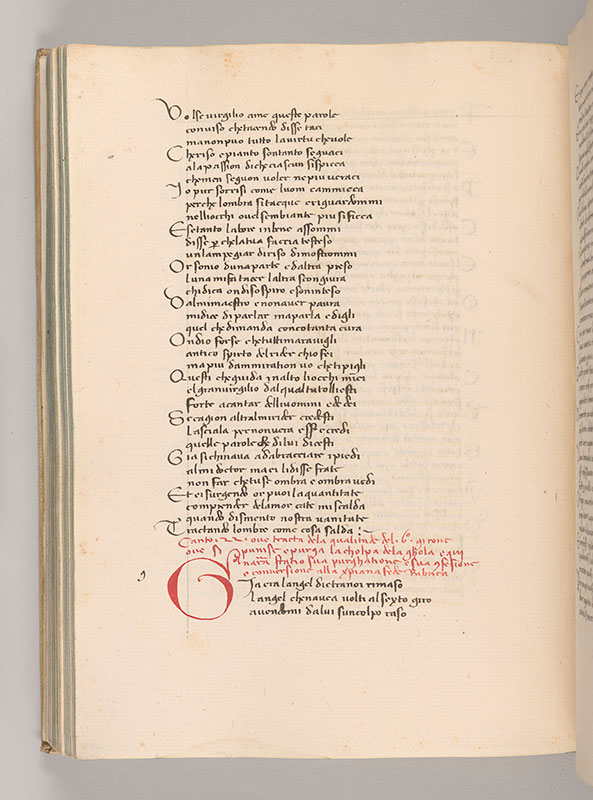 Volse virgilio ame queste parole
conviso chetacendo disse taci
manonpuo tutto lavirtu chevole
Cheriso epianto sontanto seguaci
alapassion dicheciascun sispicca
chemen seguon voler nepiu veraci
Io pur sorrisi come luom cammicca
perche lombra sitacque eriguardommi
nelliocchi ovel sembiante piu sificca
Esetanto labore inbene assommi
disse perchelatua faccia testeso
unlampegiar diriso dimostrommi
Or sonio dunaparte edaltra preso
luna mifa tacer laltra scongiura
chidica ondisospiro esoninteso
Dalmimaestro enonaver paura
midice diparlar maparla edigli
quel chedimanda concotanta cura
Ondio forse chettutimaravigli
antico spirto delrider chiofei
mapiu dammiration vo chetipigli
Questi cheguida inalto liocchi miei
elquanvirgilio dalqualtutollesti
forte acantar delliuomini ededei
Secagion altralmirider credesti
lasciala pernonvera esser ecredi
quelle parole che dilui dicesti
Gia sichinava adabracciare ipiedi
almi doctor maei lidisse frate
non far chetuse ombra e ombra vedi
Etei surgendo or puoi laquantitate
comprender delamor cate miscalda
quando dismento nostra vanitate
Tractando lombre come cosa salda
Canto 22 ove tracta dela qualitade del 6 girone
ove si punisce epurga la cholpa dela ghola equi
narra statio sua purghatione e sua confessione
e conversione alla xpiana fede Rubrica
Gia era langel dietranoi rimaso
langel chenavea volti alsexto giro
avendomi dalvi suncolpo raso